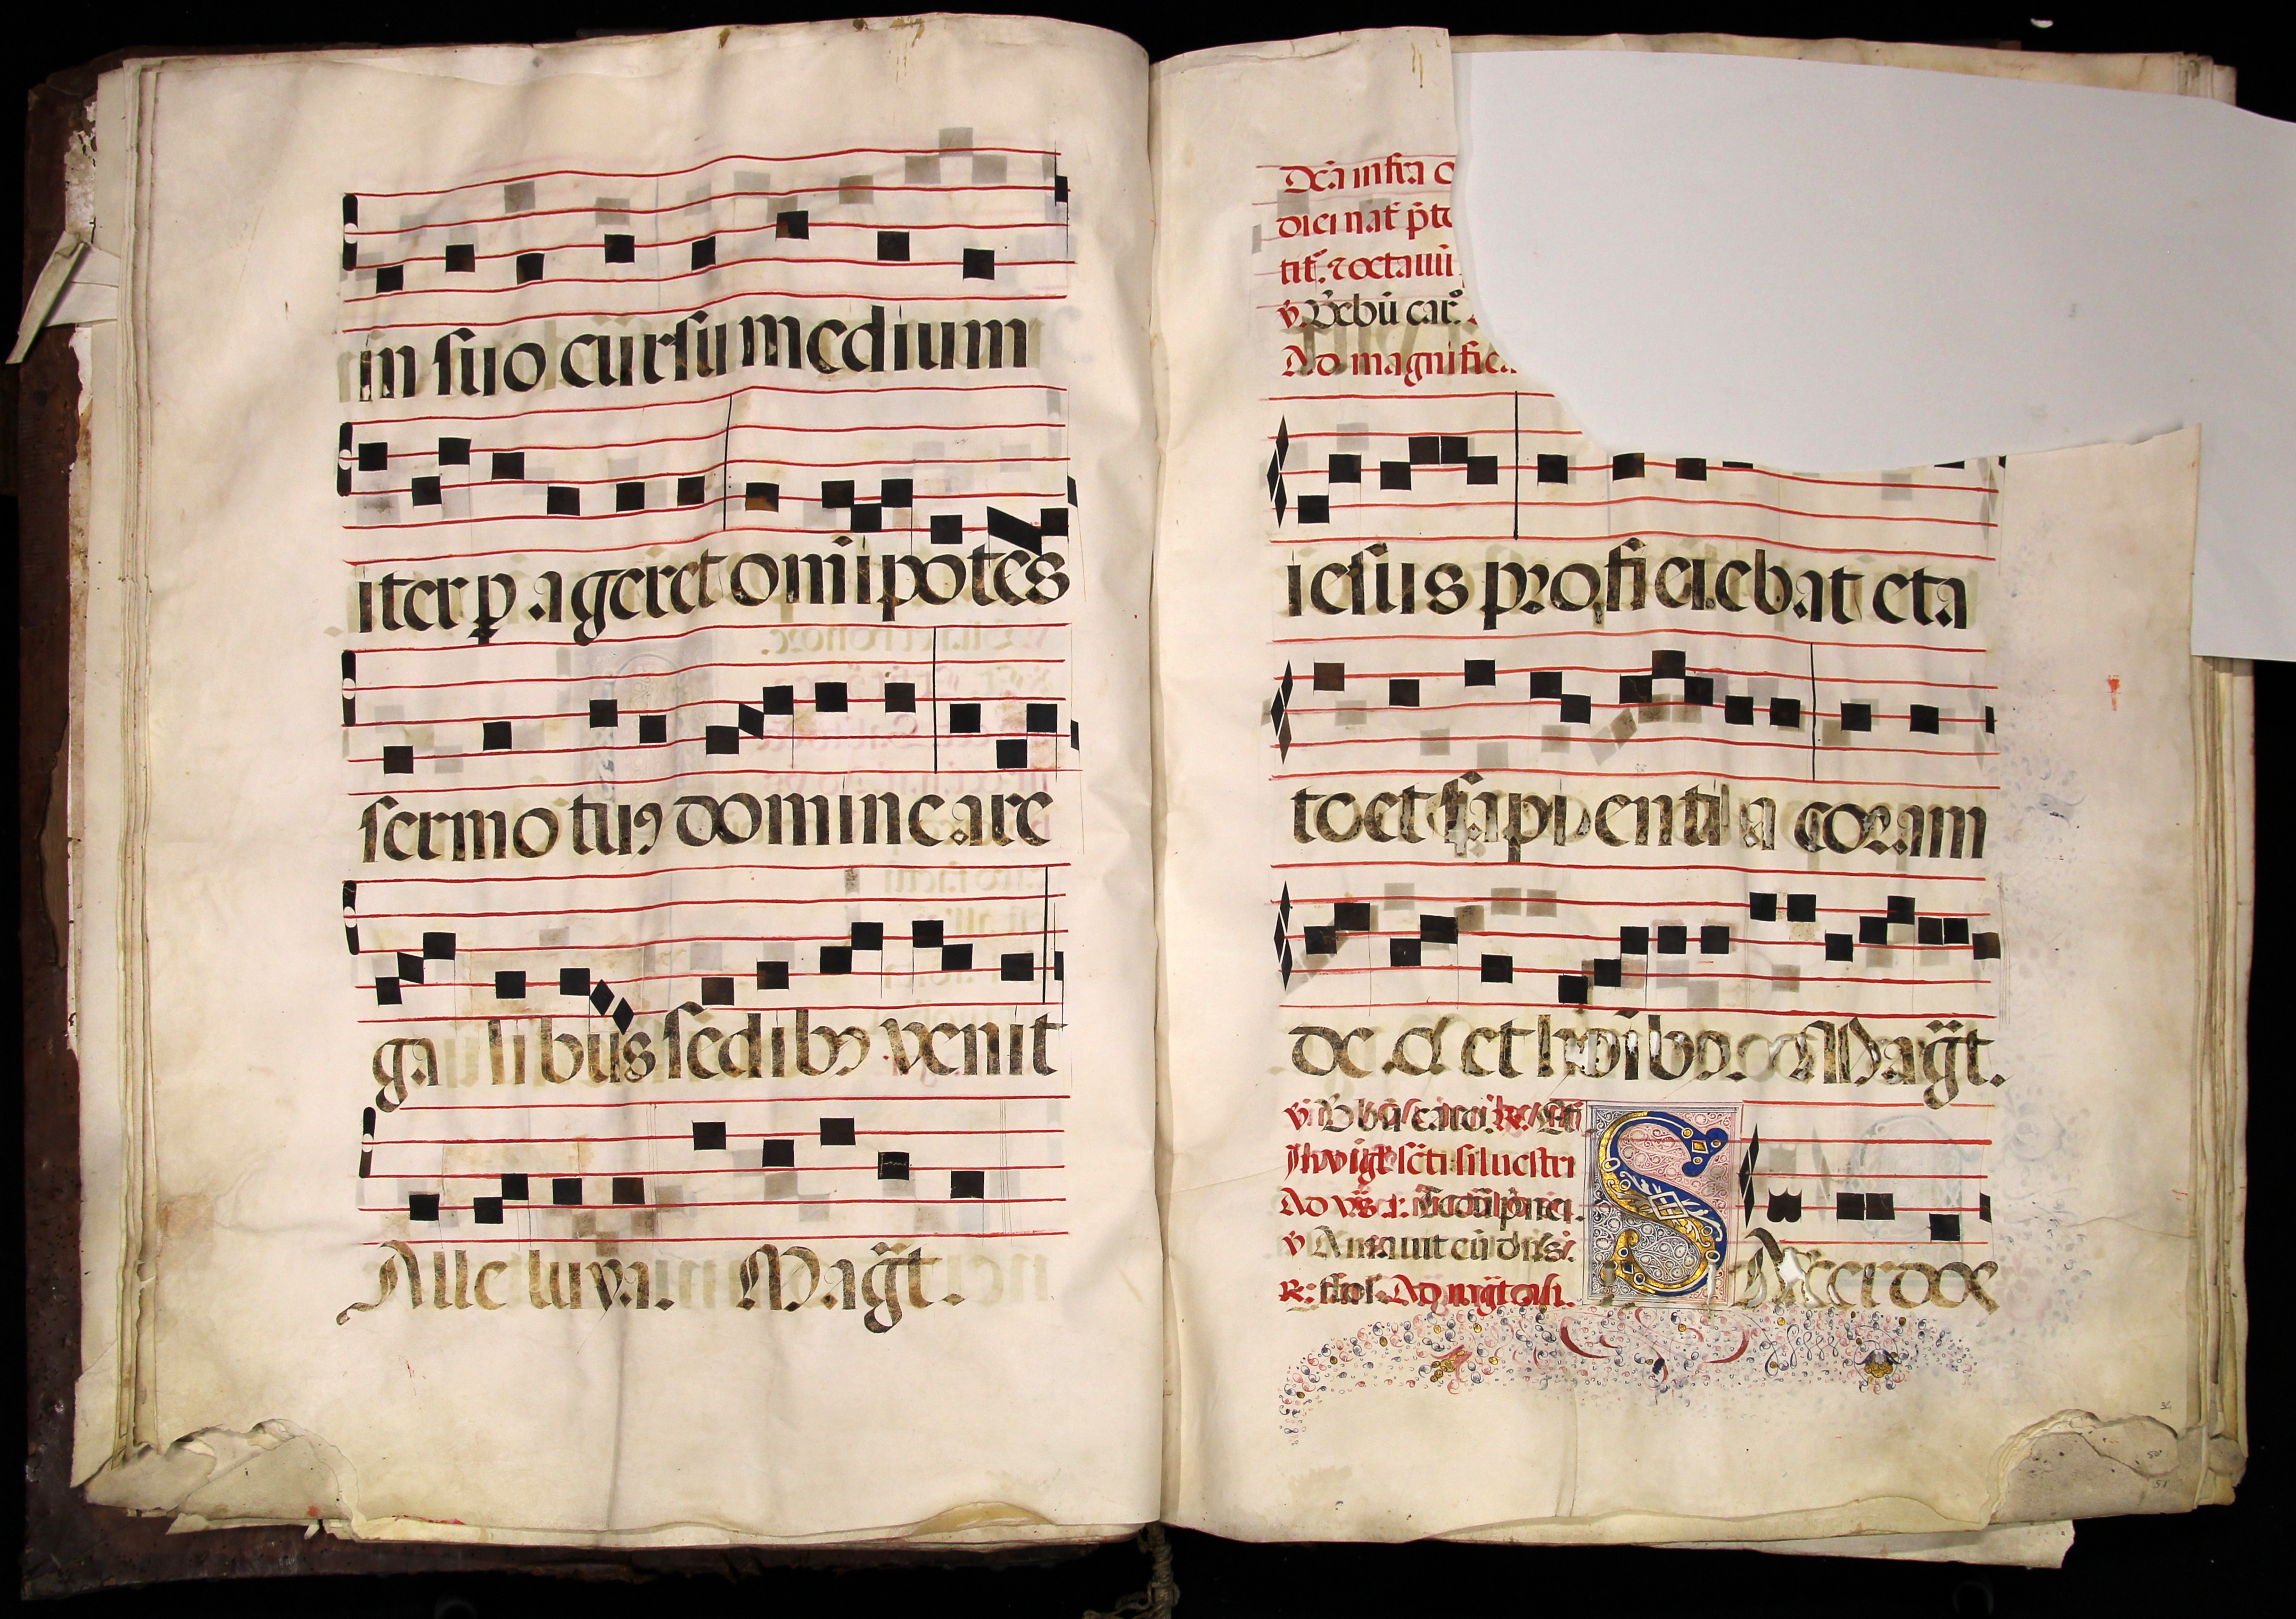 in suo cursu medium
iter ꝑ ageret omīpotēs
sermo tuꝯ domine are
ga li bus sedibꝯ venit
Alle luya. Magt̄.
Dn̄ca infra o
dici nat̄ p̄tc
tit̄. ⁊ octauū
v̄. Verbū car̄
Ad magnific
iesus proficiebat eta
te et sapi enti a coram
de o et hoībꝯ Magt̄.
In vigł sc̄ti siluestri
Ad vs̄
v̄ Amauit eū dn̄s
SAcerdos